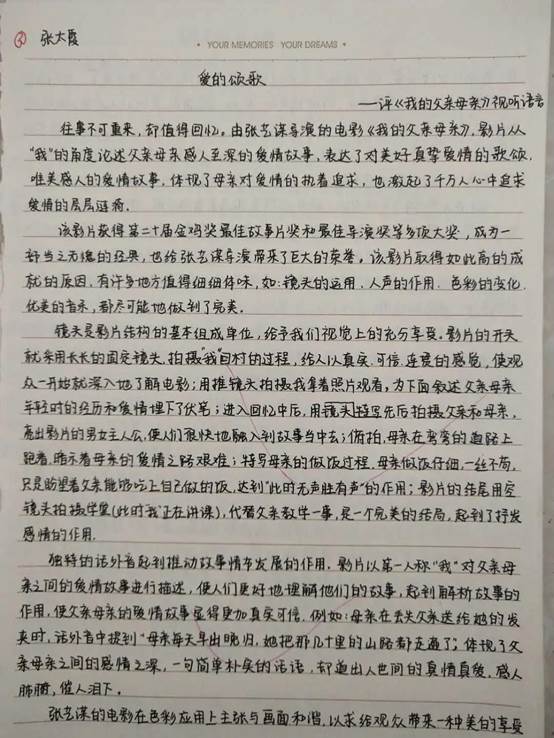 ② 张大霞
• YOUR MEMORIES YOUR DREAMS •
爱的颂歌
——评《我的父亲母亲》视听语言
往事不可重来,却值得回忆。由张艺谋导演的电影《我的父亲母亲》,影片从
“我”的角度论述父亲母亲感人至深的爱情故事,表达了对美好真挚爱情的歌颂.
唯美感人的爱情故事,体现了母亲对爱情的执着追求,也激起了千万人心中追求
爱情的层层涟漪.
该影片获得第二十届金鸡奖最佳故事片奖和最佳导演奖等多项大奖,成为一
部当之无愧的经典,也给张艺谋导演带来了巨大的荣誉。该影片取得如此高的成
就的原因,有许多地方值得细细体味,如:镜头的运用、人声的作用、色彩的变化、
优美的音乐,都尽可能地做到了完美.
镜头是影片结构的基本组成单位,给予我们视觉上的充分享受.影片的开头
就采用长长的固定镜头,拍摄“我”回村的过程,给人以真实、可信、连贯的感觉,使观
众一开始就深入地了解电影;用推镜头拍摄我拿着照片观看,为下面叙述父亲母亲
年轻时的经历和爱情埋下了伏笔;进入回忆中后,用镜头特写先后拍摄父亲和母亲,
亮出影片的男女主人公,使人们很快地融入到故事当中去;俯拍,母亲在弯弯的道路上
跑着,暗示着母亲的爱情之路艰难;特写母亲的做饭过程,母亲做饭仔细,一丝不苟,
只是盼望着父亲能够吃上自己做的饭,达到“此时无声胜有声”的作用;影片的结尾用空
镜头拍摄学堂(此时“我”正在讲课),代替父亲教学一事,是一个完美的结局,起到了抒发
感情的作用.
独特的话外音起到推动故事情节发展的作用.影片以第一人称“我”对父亲母
亲之间的爱情故事进行描述,使人们更好地理解他们的故事,起到解析故事的
作用,使父亲母亲的爱情故事显得更加真实可信.例如:母亲在丢失父亲送给她的发
夹时,话外音中提到“母亲每天早出晚归,她把那几十里的山路都走遍了;体现了父
亲母亲之间的感情之深,一句简单朴实的话语,却道出人世间的真情真爱,感人
肺腑,催人泪下。
张艺谋的电影在色彩应用上主张与画面和谐,以求给观众带来一种美的享受